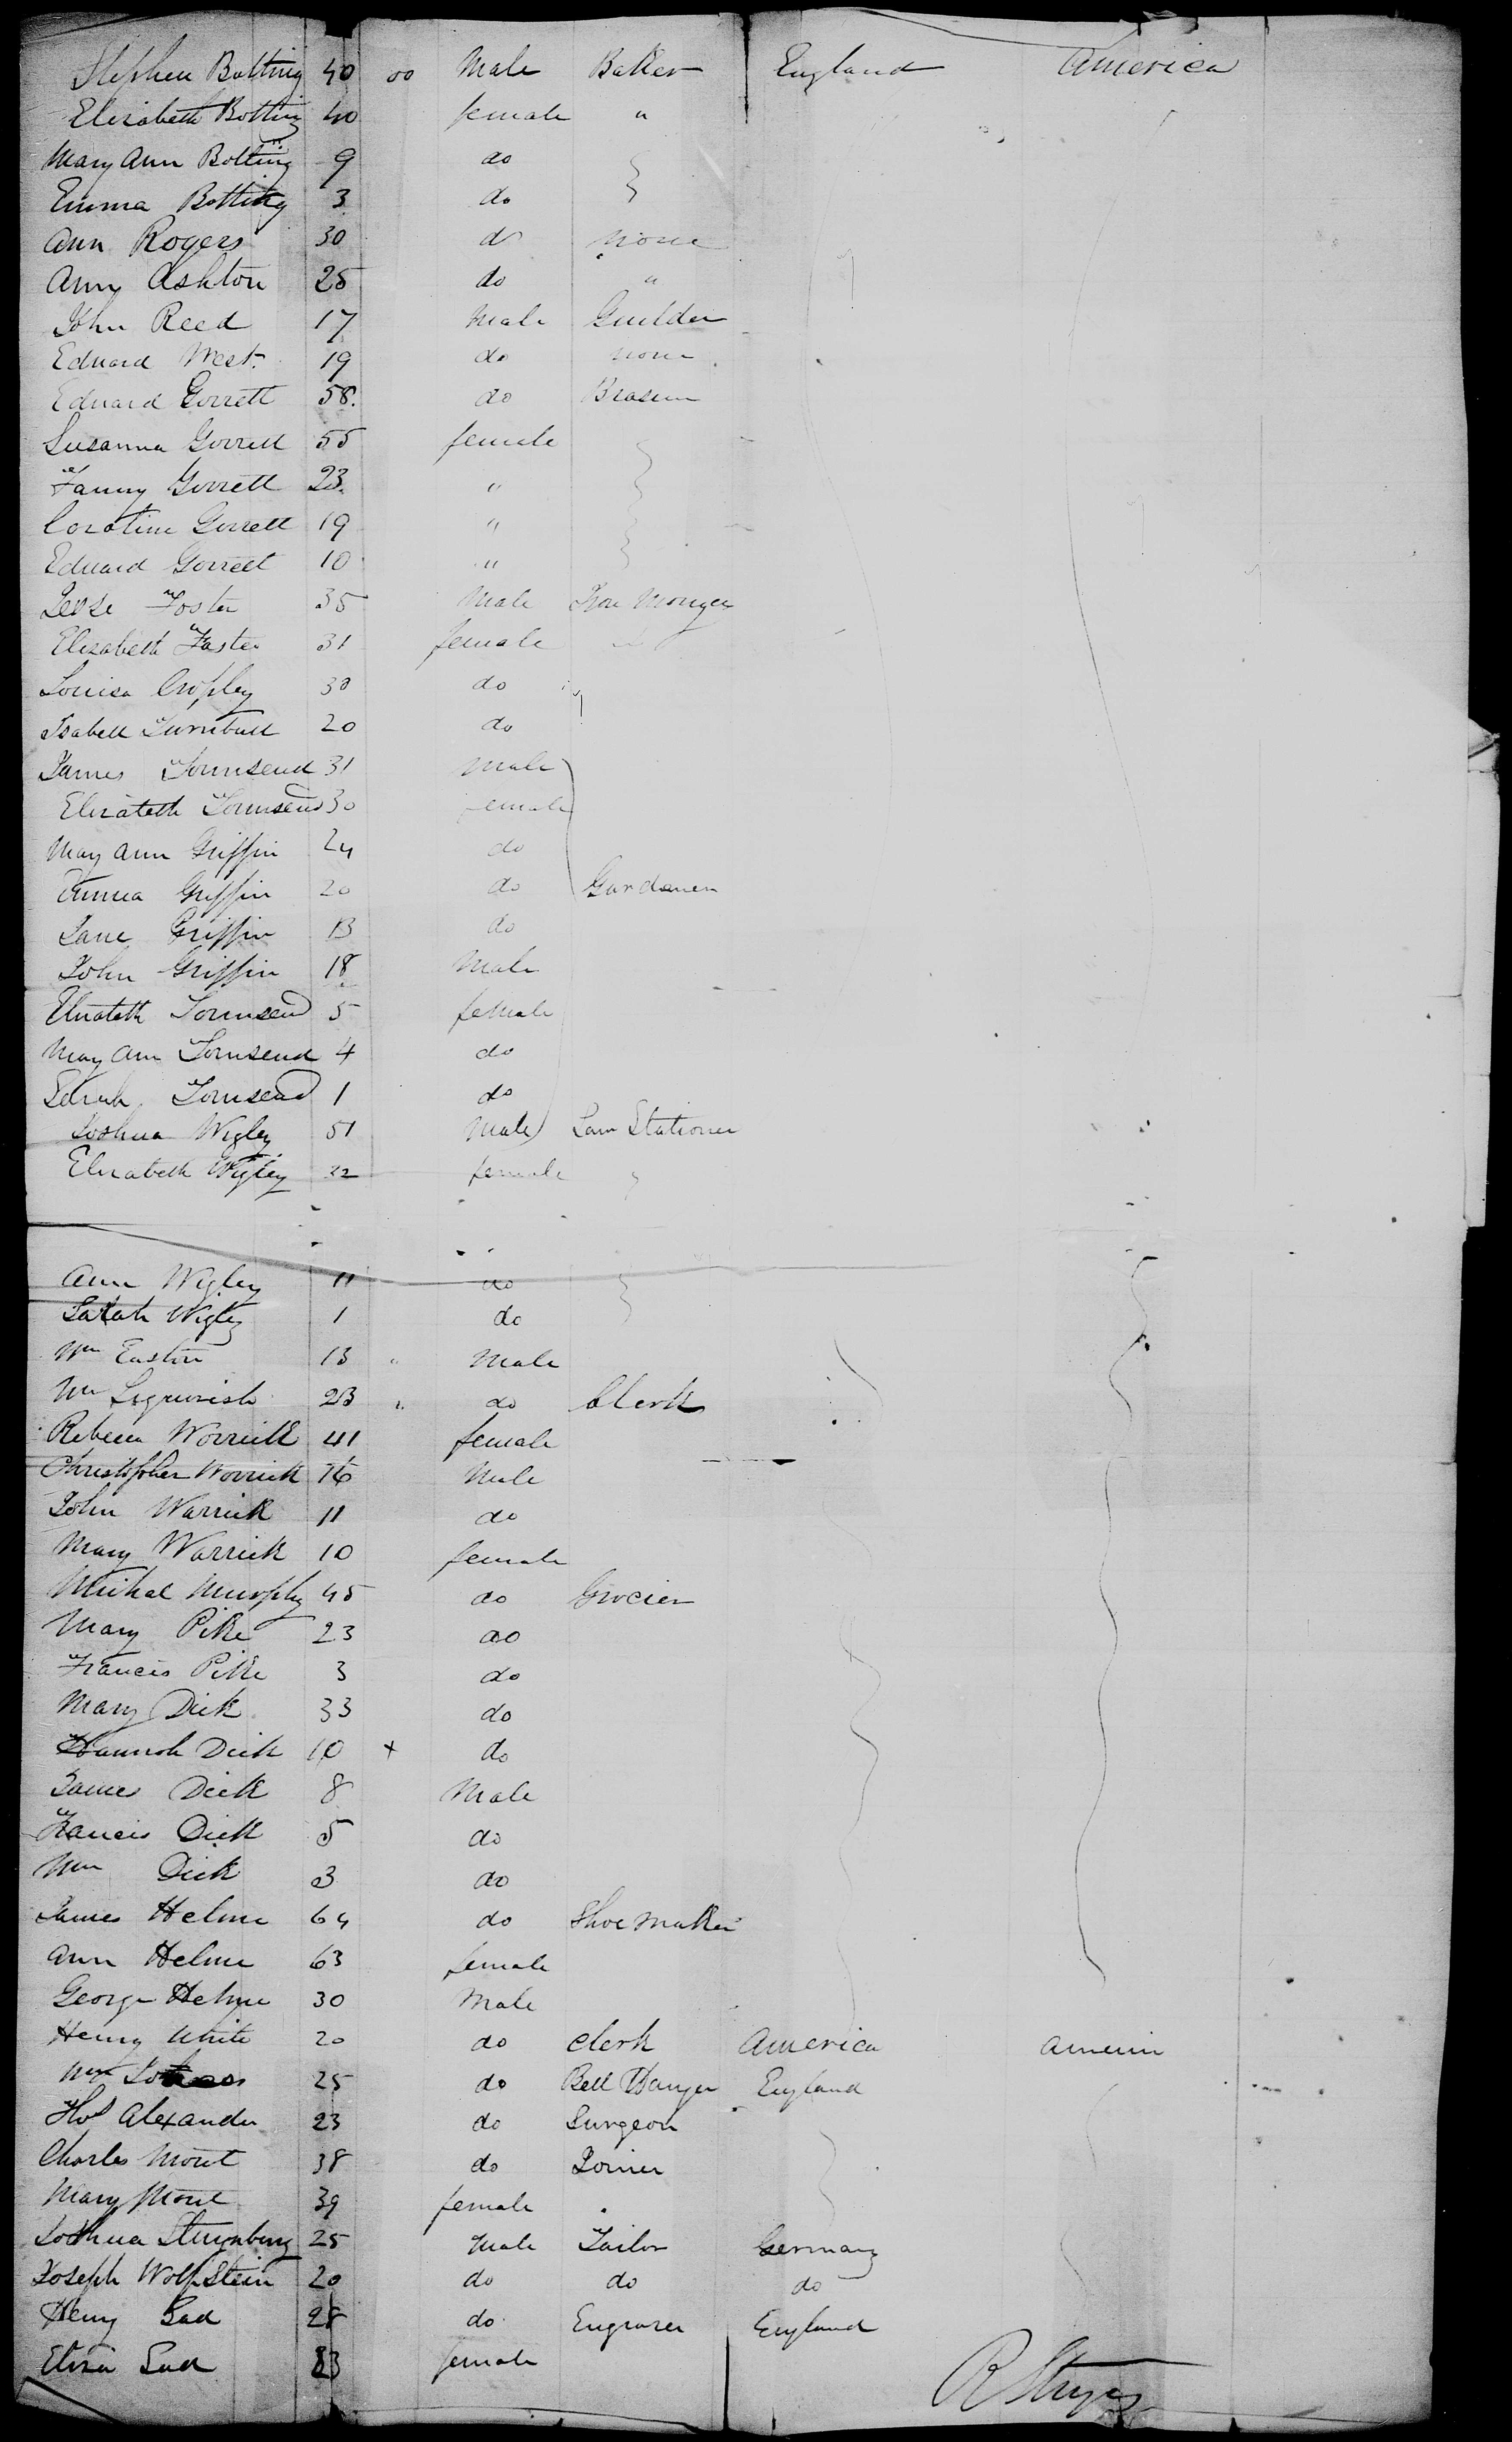 Stephen Botting 40 00 Male Baker England America
Elizabeth Botting 40 female "
Mary Ann Botting 9 do
Emma Botting 3 do
Ann Rogers 30 do none
Amy Ashton 25 do "
John Reed 17 Male
Edward West 19 do none
Edward Gorrett 58 do
Susanna Gorrett 55 female
Fanny Gorrett 23 "
Caroline Gorrett 19 "
Edward Gorrett 10 "
Foster 35 Male Iron Monger
Elizabeth Foster 31 female
Louisa Cropley 30 do
Isabell Turnbull 20 do
James Townsend 31 Male
Elizabeth Townsend 30 female
Mary Ann Griffin 24 do
Emma Griffin 20 do Gardener
Jane Griffin 13 do
John Griffin 18 Male
Elizabeth Townsend 5 female
Mary Ann Townsend 4 do
Townsend 1 do
Joshua Wigley 51 Male Law Stationer
Elizabeth Wigley 22 female
Ann Wigley 11 do
Sarah Wigley 1 do
Wm Easton 13 " Male
Wm 23 " do Clerk
Rebecca Worrick 41 female
Christopher Worrick 16 Male
John Warrick 11 do
Mary Warrick 10 female
Mikal Murphy 45 do Grocier
Mary Pike 23 do
Francis Pike 3 do
Mary Dick 33 do
Hannah Dick 10 + do
James Dick 8 Male
Francis Dick 5 do
Wm Dick 3 do
James Helme 64 do Shoe Maker
Ann Helme 63 female
George Helme 30 Male
Henry White 20 do Clerk America America
Wm 25 do Bell Hanger England
Thos Alexander 23 do Surgeon
Charles Mout 38 do Joiner
Mary Mout 39 female
Joshua 25 Male Tailor Germany
Joseph Wolfstein 20 do do do
Henry 28 do Engraver England
Eliza 33 female